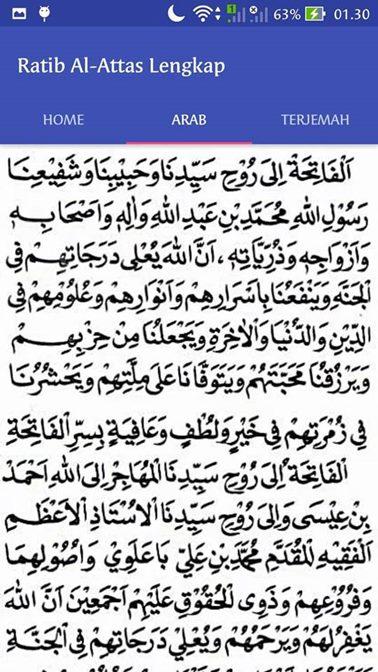 63% 01.30
Ratib Al-Attas Lengkap
HOME ARAB TERJEMAH
اَلْفَاتِحَةُ اِلَى رُوْحِ سَيِّدِنَا وَحَبِيْبِنَا وَشَفِيْعِنَا
رَسُوْلِ اللهِ مُحَمَّدِ بْنِ عَبْدِ اللهِ وَاٰلِهِ وَاَصْحَابِهِ
وَاَزْوَاجِهِ وَذُرِّيَّاتِهِ، اَنَّ اللهَ يُعْلِى دَرَجَاتِهِمْ فِى
الْجَنَّةِ وَيَنْفَعُنَا بِاَسْرَارِهِمْ وَاَنْوَارِهِمْ وَعُلُوْمِهِمْ فِى
الدِّيْنِ وَالدُّنْيَا وَاْلاٰخِرَةِ وَيَجْعَلُنَا مِنْ حِزْبِهِمْ
وَيَرْزُقُنَا مَحَبَّتَهُمْ وَيَتَوَفَّانَا عَلَى مِلَّتِهِمْ وَيَحْشُرُنَا
فِى زُمْرَتِهِمْ فِى خَيْرٍ وَلُطْفٍ وَعَافِيَةٍ بِسِرِّ الْفَاتِحَةِ
اَلْفَاتِحَةُ اِلَى رُوْحِ سَيِّدِنَا الْمُهَاجِرِ اِلَى اللهِ اَحْمَدَ
بْنِ عِيْسَى وَاِلَى رُوْحِ سَيِّدِنَا اْلاُسْتَاذِ اْلاَعْظَمِ
اَلْفَقِيْهِ الْمُقَدَّمِ مُحَمَّدِ بْنِ عَلِيّ بَاعَلَوِيْ وَاُصُوْلِهِمَا
وَفُرُوْعِهِمْ وَذَوِى الْحُقُوْقِ عَلَيْهِمْ اَجْمَعِيْنَ اَنَّ اللهَ
يَغْفِرُ لَهُمْ وَيَرْحَمُهُمْ وَيُعْلِى دَرَجَاتِهِمْ فِى الْجَنَّةِ